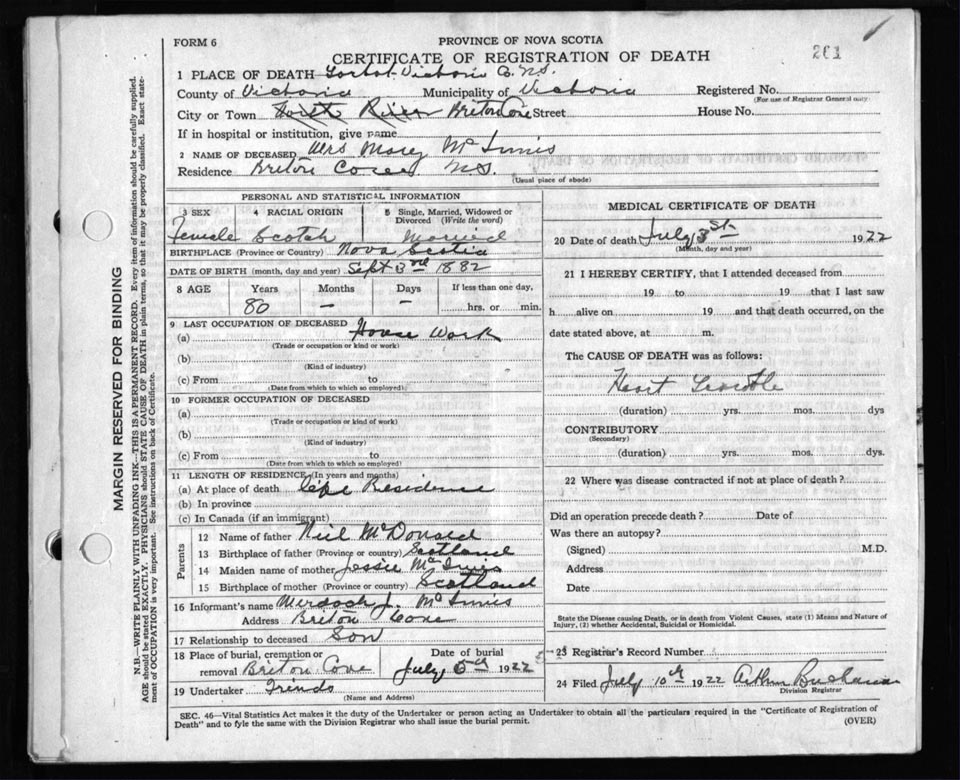 FORM 6
PROVINCE OF NOVA SCOTIA
CERTIFICATE OF REGISTRATION OF DEATH
201
1 PLACE OF DEATH Victoria Co. N.S.
County of Victoria Municipality of Victoria Registered No.
(For use of Registrar General only)
City or Town North River Breton Cove Street House No.
If in hospital or institution, give name
2 NAME OF DECEASED Mrs Mary McInnis
Residence Breton Cove N.S.
(Usual place of abode)
PERSONAL AND STATISTICAL INFORMATION
3 SEX 4 RACIAL ORIGIN 5 Single, Married, Widowed or Divorced (Write the word)
Female Scotch Married
BIRTHPLACE (Province or Country) Nova Scotia
DATE OF BIRTH (month, day and year) Sept 3rd 1882
8 AGE Years Months Days If less than one day,
80 — — hrs. or min.
9 LAST OCCUPATION OF DECEASED
(a) House Work
(Trade or occupation or kind or work)
(b)
(Kind of industry)
(c) From to
(Date from which to which so employed)
10 FORMER OCCUPATION OF DECEASED
(a)
(Trade or occupation or kind of work)
(b)
(Kind of industry)
(c) From to
(Date from which to which so employed)
11 LENGTH OF RESIDENCE (In years and months)
(a) At place of death Life Residence
(b) In province
(c) In Canada (if an immigrant)
Parents
12 Name of father Neil McDonald
13 Birthplace of father (Province or country) Scotland
14 Maiden name of mother Jessie McInnis
15 Birthplace of mother (Province or country) Scotland
16 Informant's name Murdoch J. McInnis
Address Breton Cove
17 Relationship to deceased Son
18 Place of burial, cremation or removal Breton Cove Date of burial July 5th 1922
19 Undertaker Friends
(Name and Address)
MEDICAL CERTIFICATE OF DEATH
20 Date of death July 3st 1922
(Month, day and year)
21 I HEREBY CERTIFY, that I attended deceased from
19 to 19 that I last saw
h alive on 19 and that death occurred, on the
date stated above, at m.
The CAUSE OF DEATH was as follows:
Heart Trouble
(duration) yrs. mos. dys
CONTRIBUTORY
(Secondary)
(duration) yrs. mos. dys.
22 Where was disease contracted if not at place of death?
Did an operation precede death? Date of
Was there an autopsy?
(Signed) M.D.
Address
Date
State the Disease causing Death, or in death from Violent Causes, state (1) Means and Nature of
Injury, (2) whether Accidental, Suicidal or Homicidal.
23 Registrar's Record Number
24 Filed July 10th 1922 Arthur Buchanan
Division Registrar
SEC. 46—Vital Statistics Act makes it the duty of the Undertaker or person acting as Undertaker to obtain all the particulars required in the "Certificate of Registration of
Death" and to fyle the same with the Division Registrar who shall issue the burial permit.
(OVER)
MARGIN RESERVED FOR BINDING
N.B.—WRITE PLAINLY WITH UNFADING INK—THIS IS A PERMANENT RECORD. Every item of information should be carefully supplied.
AGE should be stated EXACTLY. PHYSICIANS should STATE CAUSE OF DEATH in plain terms, so that it may be properly classified. Exact statement of OCCUPATION is very important. See instructions on back of Certificate.